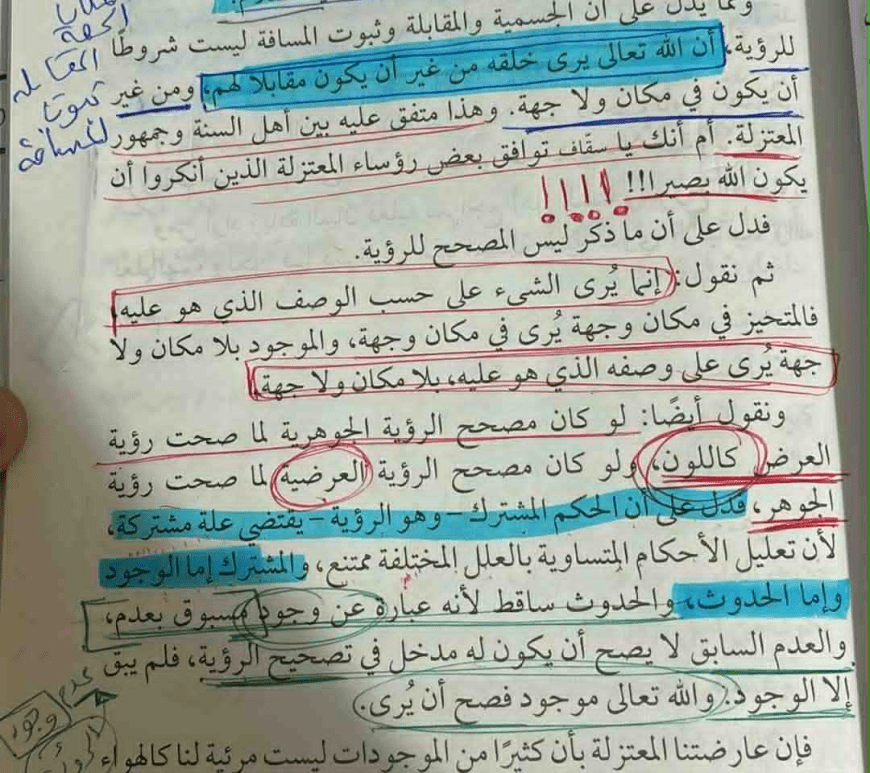 ومما يدل على أن الجسمية والمقابلة وثبوت المسافة ليست شروطًا
للرؤية، أن الله تعالى يرى خلقه من غير أن يكون مقابلا لهم، ومن غير
أن يكون في مكان ولا جهة. وهذا متفق عليه بين أهل السنة وجمهور
المعتزلة. أم أنك يا سقَّاف توافق بعض رؤساء المعتزلة الذين أنكروا أن
يكون الله بصيرا!! !!!!
فدل على أن ما ذكر ليس المصحح للرؤية.
ثم نقول: إنما يُرى الشيء على حسب الوصف الذي هو عليه،
فالمتحيز في مكان وجهة يُرى في مكان وجهة، والموجود بلا مكان ولا
جهة يُرى على وصفه الذي هو عليه، بلا مكان ولا جهة.
ونقول أيضًا: لو كان مصحح الرؤية الجوهرية لما صحت رؤية
العرض كاللون، ولو كان مصحح الرؤية العرضية لما صحت رؤية
الجوهر، فدل على أن الحكم المشترك - وهو الرؤية - يقتضي علة مشتركة،
لأن تعليل الأحكام المتساوية بالعلل المختلفة ممتنع، والمشترك إما الوجود
وإما الحدوث، والحدوث ساقط لأنه عبارة عن وجود مسبوق بعدم،
والعدم السابق لا يصح أن يكون له مدخل في تصحيح الرؤية، فلم يبق
إلا الوجود. والله تعالى موجود فصح أن يُرى.
فإن عارضتنا المعتزلة بأن كثيرًا من الموجودات ليست مرئية لنا كالهواء
الجهة
المقابلة
ثبوت
المسافة
عدم
وجود